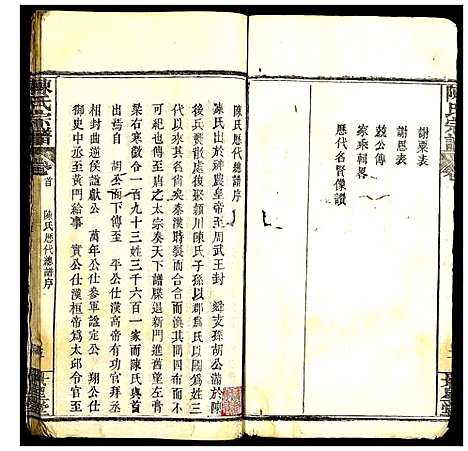 謝表
謝恩表
公傳
家乘輯畧
歷代名賢像讚
陳氏宗譜
陳氏宗譜
首
陳氏歷代總譜序
陳氏歷代總譜序
陳氏出於神農皇帝至周武王封 舜支孫胡公滿於陳
後兵燹散處後聚潁川陳氏子孫以郡爲氏以國爲姓三
代以來其名裔矣秦漢時裂而合合而流派流而混不
可祀也傳至唐之太宗奏天下譜牒退新進舊望左膏
梁右寒微合一百九十三姓三千六百一 家而陳氏與首
出焉自 胡公而下傳至 平公仕漢高帝有功官拜丞
相封曲逆侯諡獻公 萬年公仕參軍諡定公 翔公仕
御史中丞至黃門給事 實公仕漢桓帝爲太邱令官至